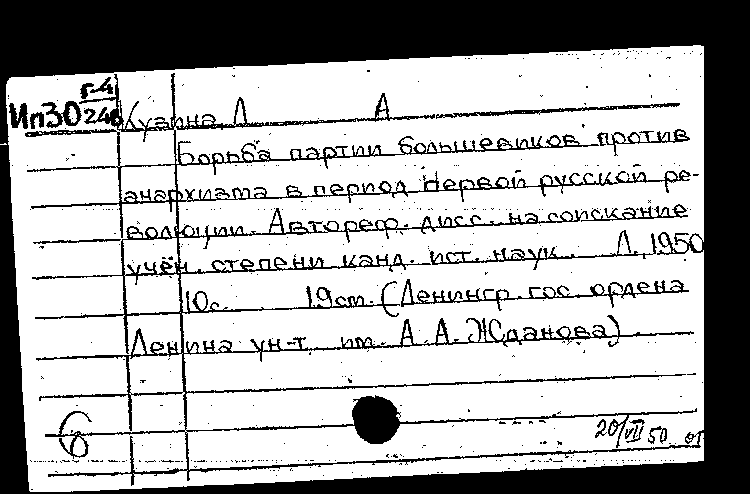 Г-4
Ип30 246
Кузина, Л А
Борьба партии большевиков против
анархизма в период первой русской ре-
волюции. Автореф. дисс. на соискание
учён. степени канд. ист. наук. Л., 1950
10с. 19см. (Ленингр. гос. ордена
Ленина ун-т им. А. А. Жданова)
6
20/VII 50